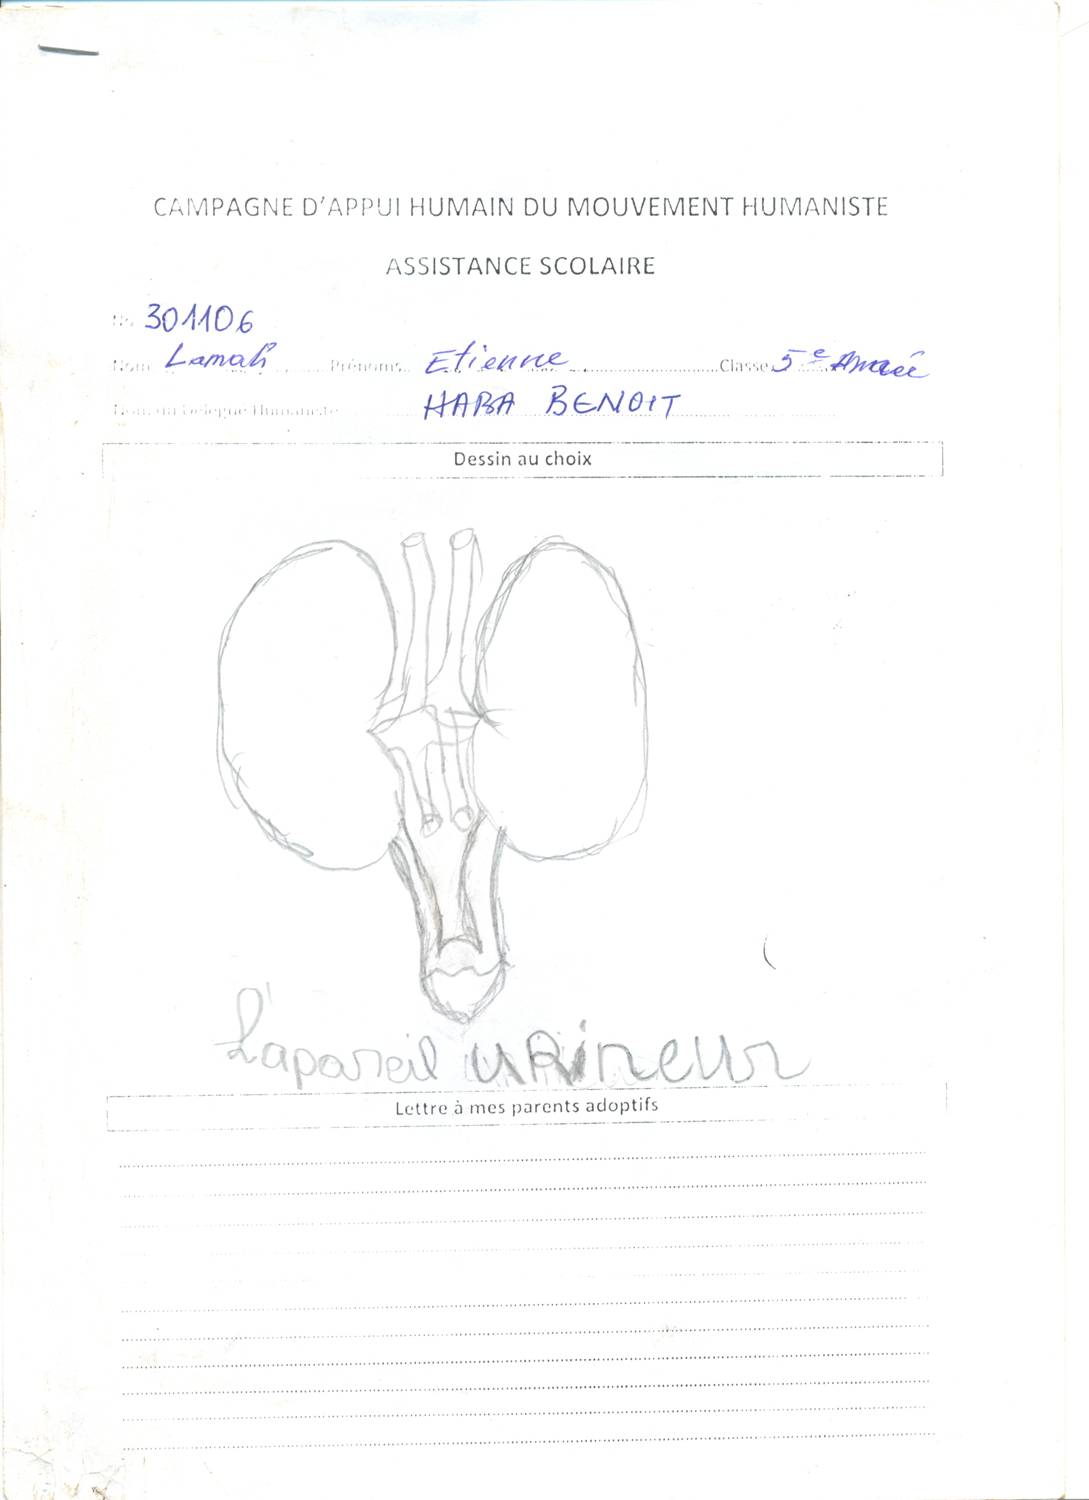 CAMPAGNE D'APPUI HUMAIN DU MOUVEMENT HUMANISTE
ASSISTANCE SCOLAIRE
No 301106
Nom Lamah Prénoms Etienne Classe 5e Année
Nom du Délégué Humaniste HABA BENOIT
Dessin au choix
L'apareil urineur
Lettre à mes parents adoptifs